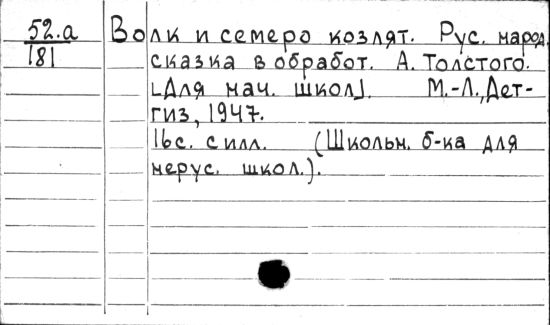 52.а
181
Волк и семеро козлят. Рус. народ.
сказка в обработ. А. Толстого.
[Для нач. школ]. М.-Л., Дет-
гиз, 1947.
16с. с илл. (Школьн. б-ка для
нерус. школ.).